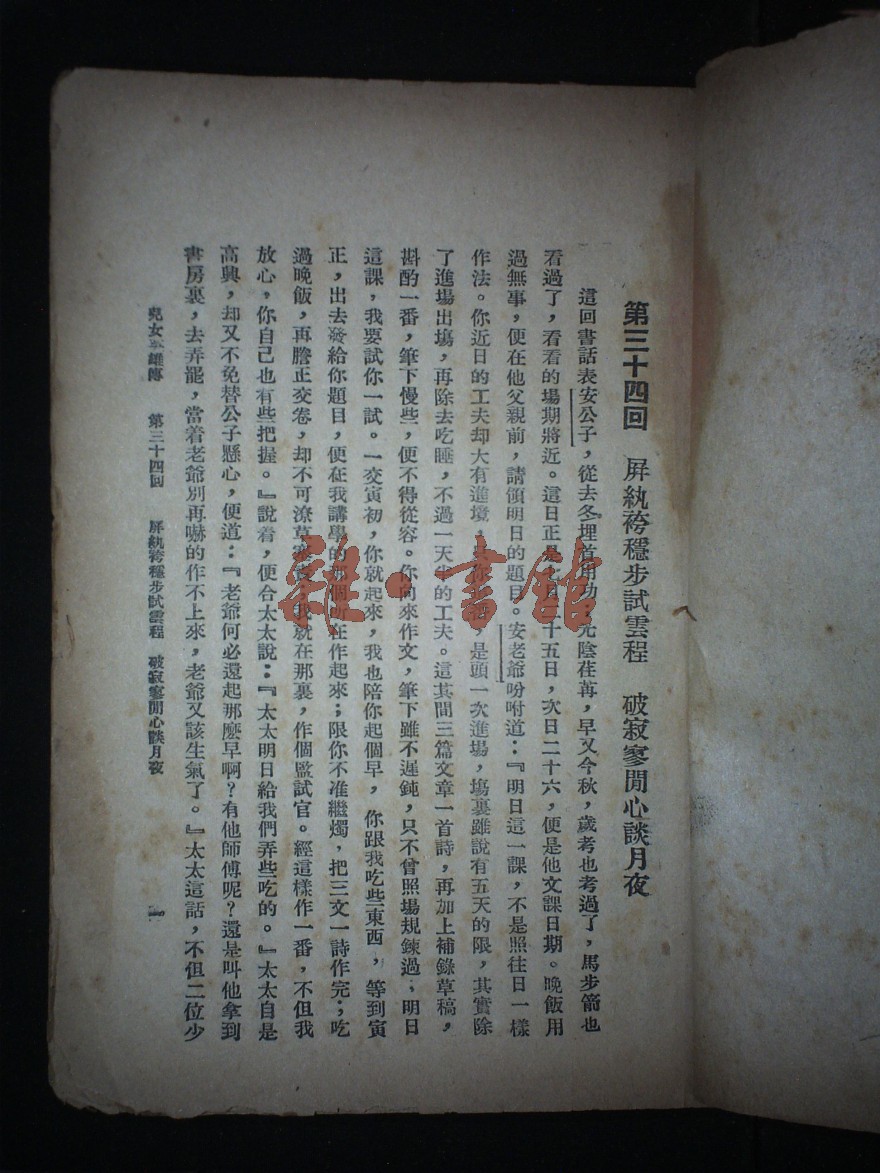 第三十四回　屏紈袴穩步試雲程　破寂寥閒心談月夜
這回書話表安公子，從去冬埋首用功，光陰荏苒，早又今秋，歲考也考過了，馬步箭也
看過了，看看的場期將近。這日正是七月二十五日，次日二十六，便是他文課日期。晚飯用
過無事，便在他父親前，請領明日的題目。安老爺吩咐道：『明日這一課，不是照往日一樣
作法。你近日的工夫却大有進境，只你這番，是頭一次進場，場裏雖說有五天的限，其實除
了進場出場，再除去吃睡，不過一天半的工夫。這其間三篇文章一首詩，再加上補錄草稿，
斟酌一番，筆下慢些，便不得從容。你向來作文，筆下雖不遲鈍，只不曾照場規鍊過；明日
這課，我要試你一試。一交寅初，你就起來，我也陪你起個早，你跟我吃些東西，等到寅
正，出去發給你題目，便在我講學的那個所在作起來；限你不准繼燭，把三文一詩作完；吃
過晚飯，再謄正交卷，却不可潦草塞責，我就在那裏，作個監試官。經這樣作一番，不但我
放心，你自己也有些把握。』說着，便合太太說：『太太明日給我們弄些吃的。』太太自是
高興，却又不免替公子懸心，便道：『老爺何必還起那麼早啊？有他師傅呢？還是叫他拿到
書房裏，去弄罷，當着老爺別再嚇的作不上來，老爺又該生氣了。』太太這話，不但二位少
兒女英雄傳　第三十四回　屏紈袴穩步試雲程　破寂寥閒心談月夜　一
雜·書館